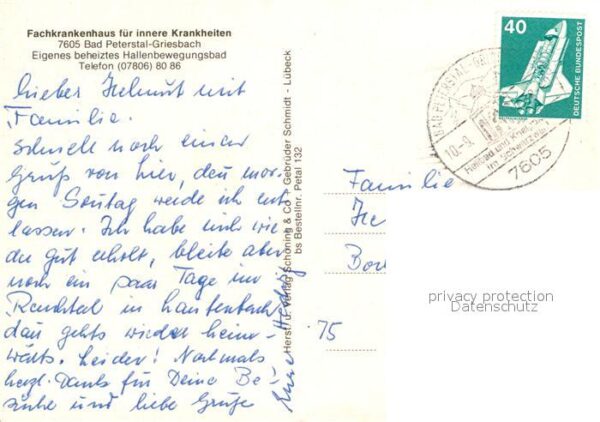 Fachkrankenhaus für innere Krankheiten
7605 Bad Peterstal-Griesbach
Eigenes beheiztes Hallenbewegungsbad
Telefon (07806) 80 86
Lieber Helmut mit
Familie.
Schnell noch einen
Gruß von hier, den mor-
gen Sontag werde ich ent
lassen. Ich habe mich wie
der gut erholt, bleibe aber
noch ein paar Tage im
Renchtal in Lautenbach
dan gehts wieder heim-
wärts. Leider! Nochmals
herzl. Dank für Deine Be-
suche und liebe Grüße
Herst. u. Verlag Schöning & Co + Gebrüder Schmidt - Lübeck
bs Bestellnr. Petal 132
40
DEUTSCHE BUNDESPOST
BAD PETERSTAL-GRIESBACH
10.-9.
Heilbad und Kneipp
im Schwarzwald
7605
Familie
He
Bo
75
privacy protection
Datenschutz